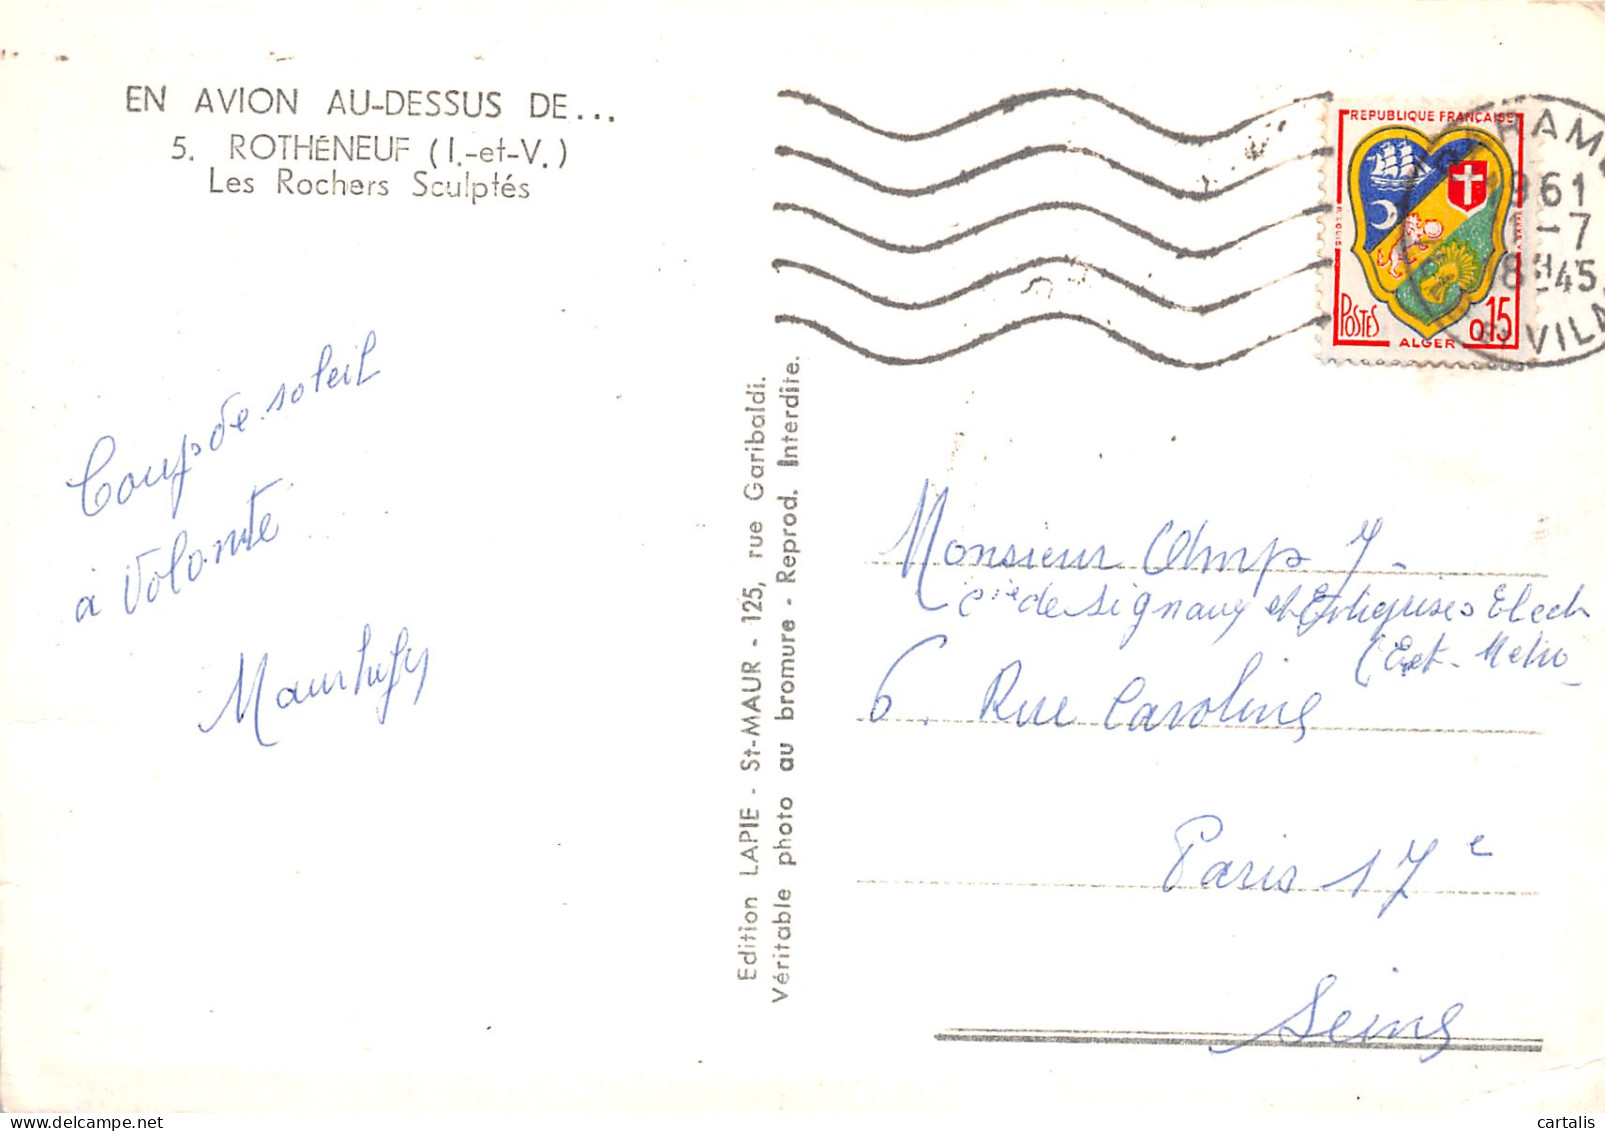 EN AVION AU-DESSUS DE...
5. ROTHÉNEUF (I.-et-V.)
Les Rochers Sculptés
Coup de soleil
à volonté
Edition LAPIE - St-MAUR - 125, rue Garibaldi.
Véritable photo au bromure - Reprod. Interdite.
REPUBLIQUE FRANÇAISE
POSTES
ALGER
0,15
RAM
961
-7
45
VILA
Monsieur
Cie de Signaux et Entreprises Elect
6. Rue Caroline
Paris 17e
Seine
cartalis